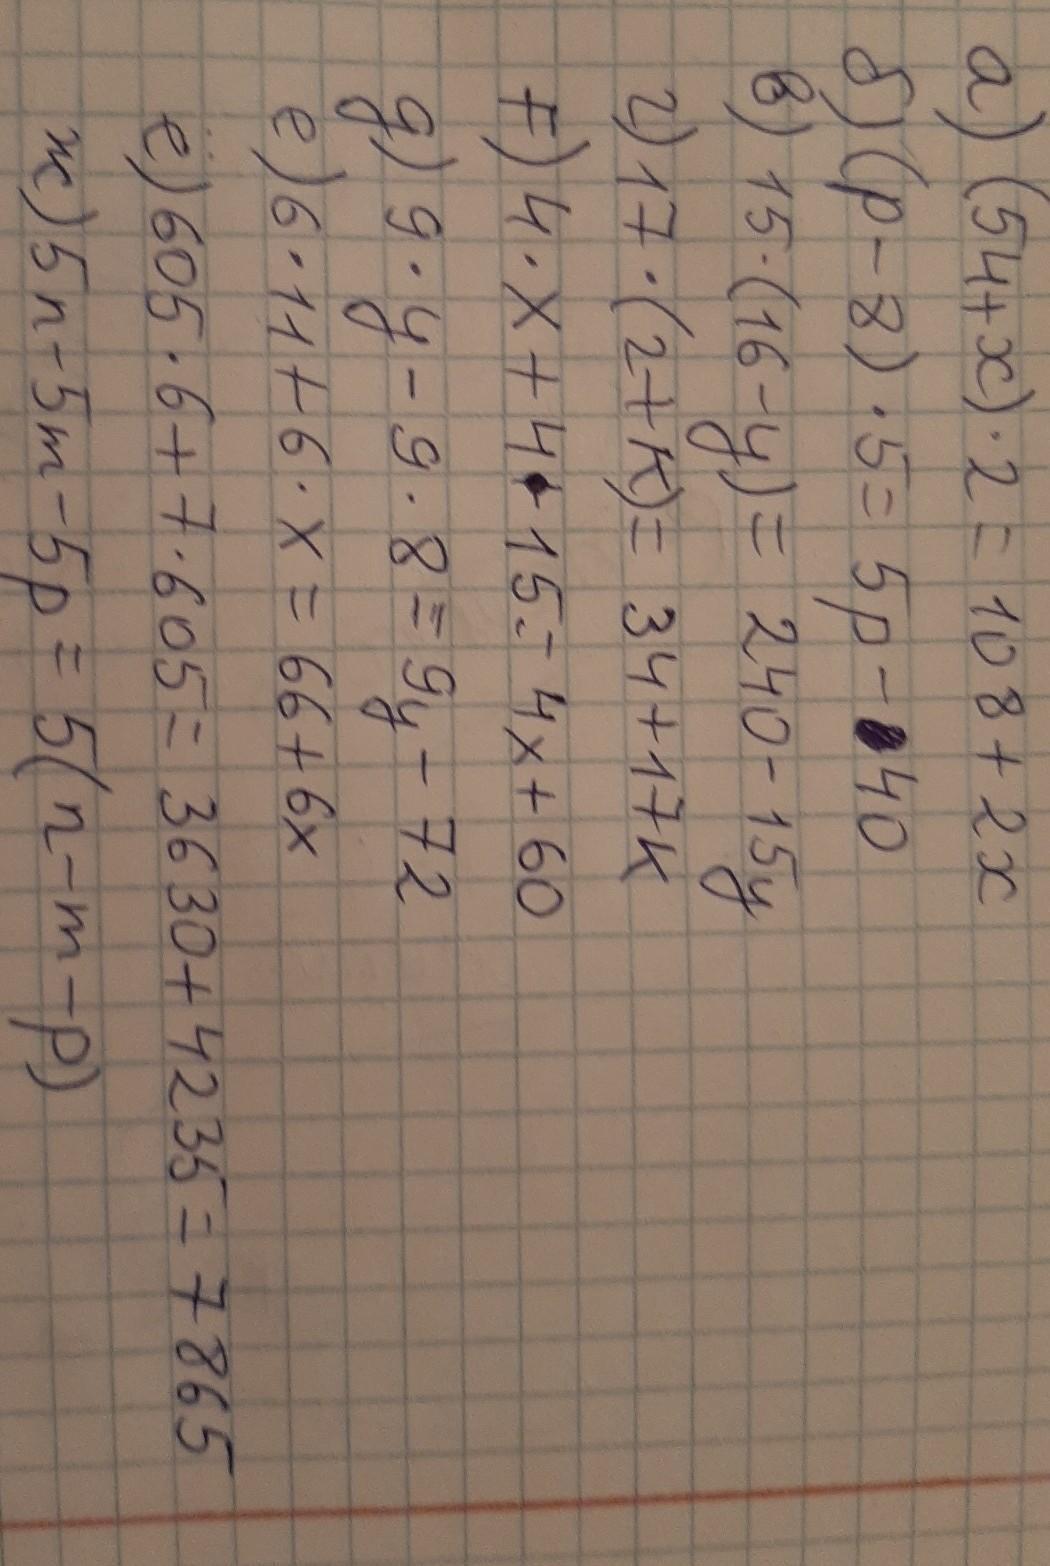 а) (54+x)·2=108+2x
б) (p-8)·5=5p-40
в) 15·(16-y)=240-15y
г) 17·(2+k)=34+17k
ґ) 4·x+4·15=4x+60
д) 9·y-9·8=9y-72
е) 6·11+6·x=66+6x
ё) 605·6+7·605=3630+4235=7865
ж) 5n-5m-5p=5(n-m-p)